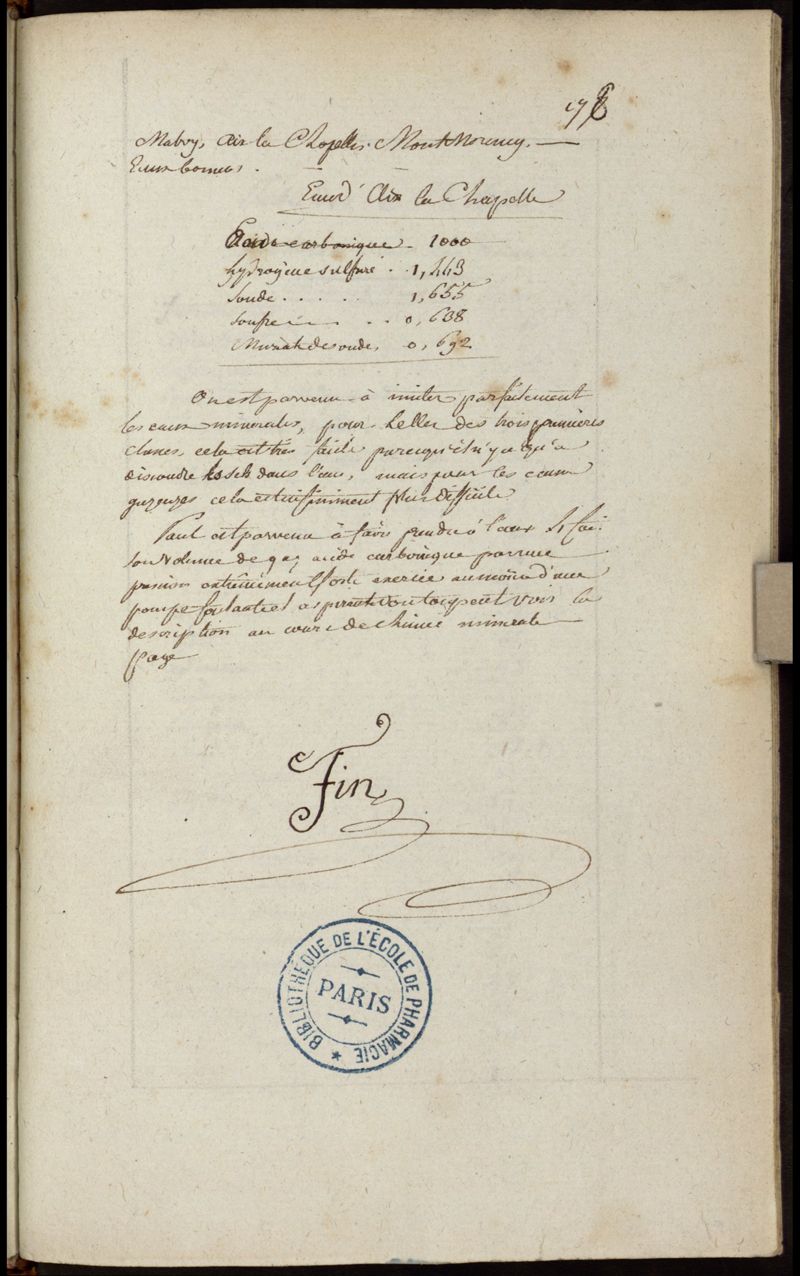 178
Aix la Chapelle. Montmorency. —
Eaux bonnes.
Eau d'Aix la Chapelle
Acide carbonique - 1000
hydrogène sulfuré . . 1,243
Soude . . . . . 1,655
soufre . . 0,638
Muriate de soude, 0,692
On est parvenu à imiter parfaitement
les eaux minerales, pour celles des trois premières
classes, cela est très facile parcequ'il n'y a qu'à
dissoudre les sels dans l'eau, mais pour les eaux
gazeuzes cela est infiniment plus difficile
Paul est parvenu à faire prendre à l'eau
son volume de gaz acide carbonique par une
pression extrêmement forte exercée au moyen d'une
pompe foulante et aspirante peut voir la
description au cours de chimie minerale
page
Fin
BIBLIOTHÈQUE DE L'ÉCOLE DE PHARMACIE
PARIS